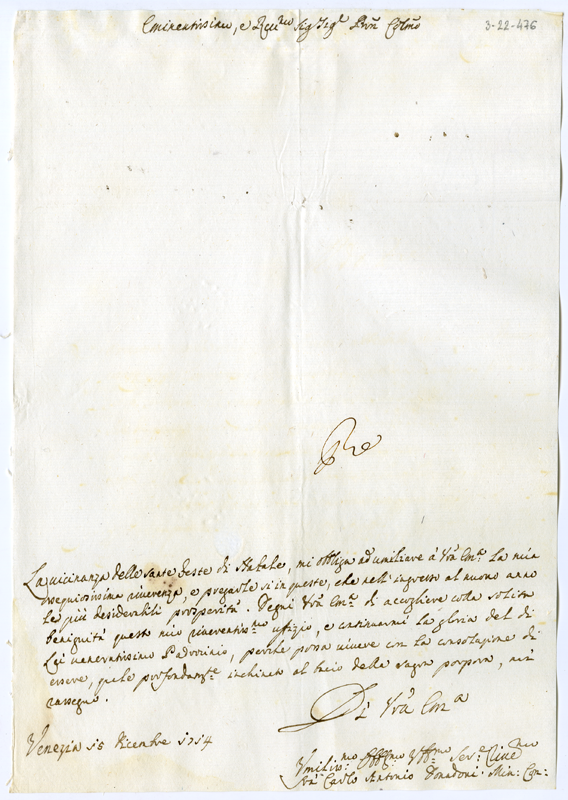 Eminentissimo, e Reu:mo Sig:r Sig:r Prõn Colmo
3-22-476
Re
La uicinanza delle sante feste di Natale, mi obliga ad umiliare à Vrã Em:a la mia
ossequiosissima riuerenza, e pregarle sì in queste, che nell'ingresso al nuouo anno
le più desiderabili prosperità. Degni Vrã Em:a di accogliere colla solita
benignità questo mio riuerentiss:mo uffizio, e continuarmi la gloria del di
Lei ueneratissimo Padrocinio, perche possa uiuere con la consolazione di
essere, quale profondam:te inchinato al bacio della sagra porpora, mi
rassegno.
Di Vrã Em:a
Venezia 15 Dicembre 1714
Vmiliss:mo Obblg:mo Ser:e
Frà Carlo Antonio Donadoni Min: Con: